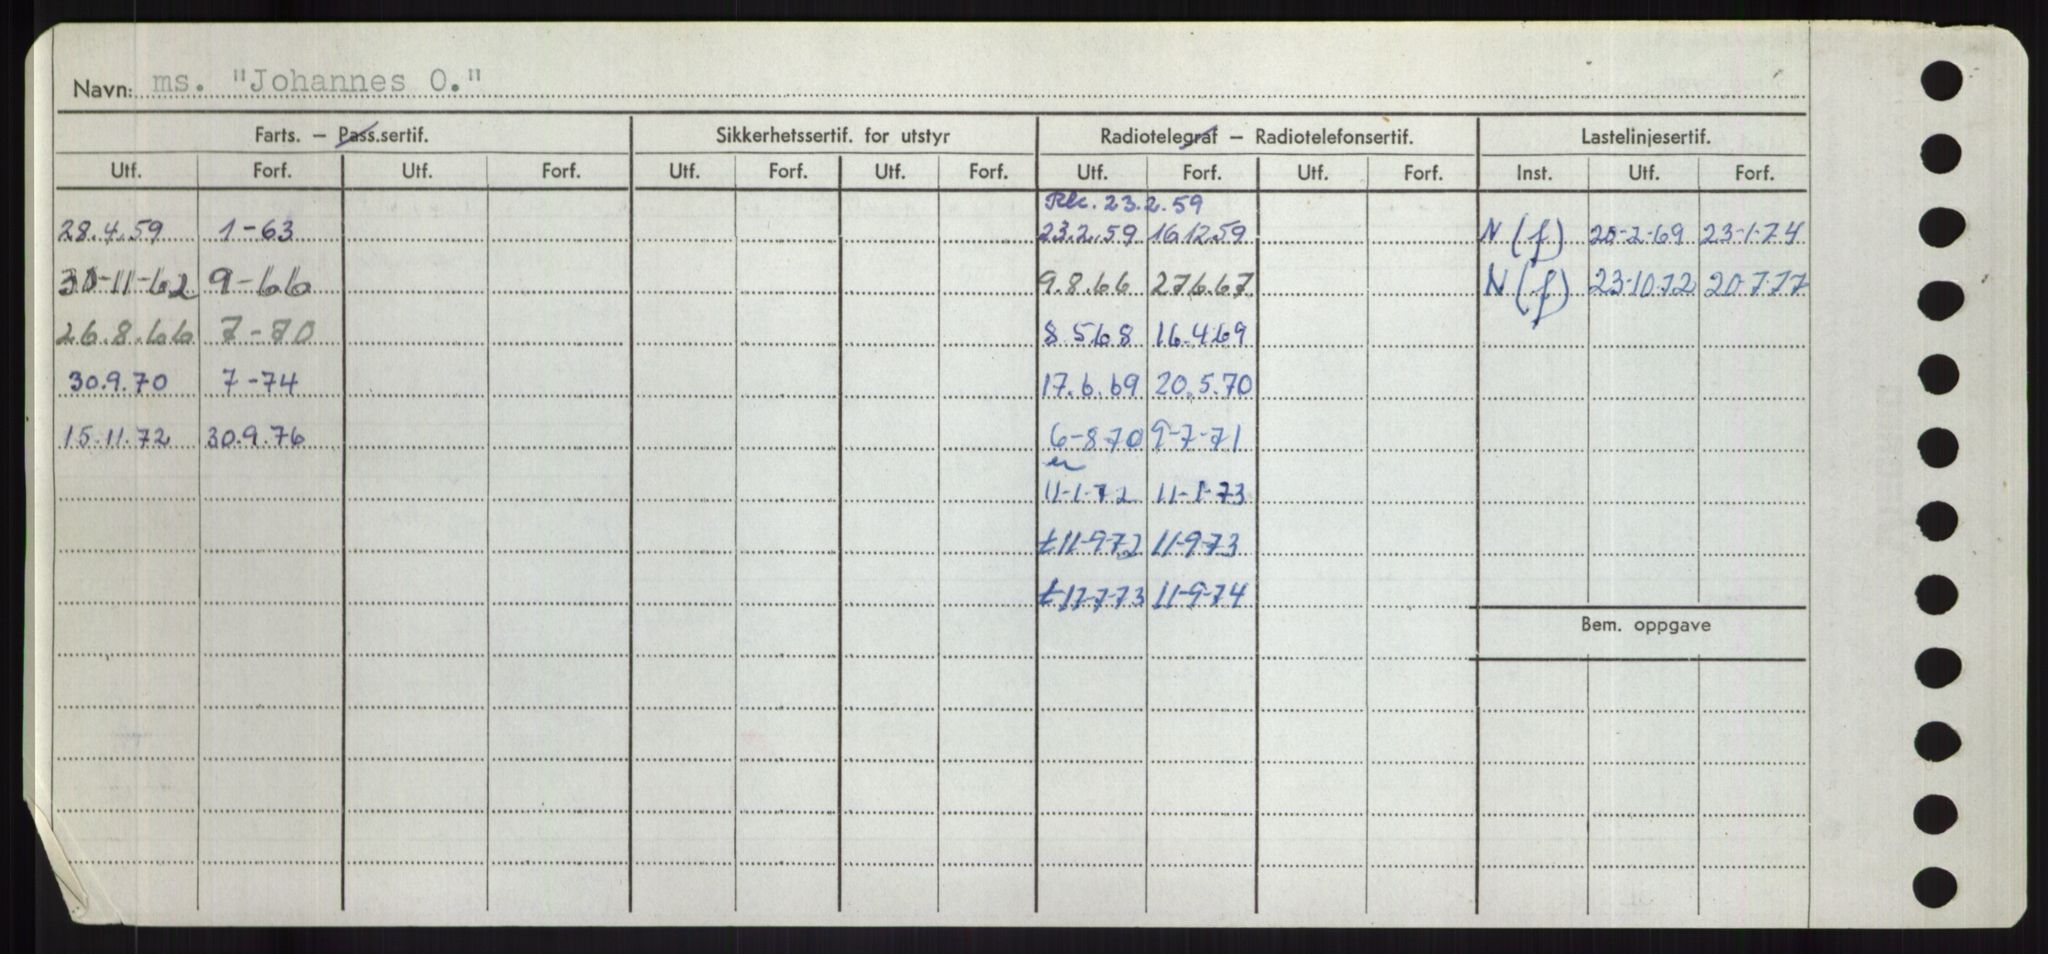 Navn: ms. "Johannes O."
Farts. — Pass.sertif. Sikkerhetssertif. for utstyr Radiotelegraf — Radiotelefonsertif. Lastelinjesertif.
Utf. Forf. Utf. Forf. Utf. Forf. Utf. Forf. Utf. Forf. Utf. Forf. Inst. Utf. Forf.
23.2.59
28.4.59 1-63 23.2.59 16.12.59 N (f) 25-2-69 23-1-74
30-11-62 9-66 9.8.66 27.6.67 N (f) 23-10-72 20-7-77
26.8.66 7-70 8.5.68 16.4.69
30.9.70 7-74 17.6.69 20.5.70
15-11.72 30.9.76 6-8-70 9-7-71
11-1-72 11-1-73
t 11-9-72 11-9-73
t 17-7-73 11-9-74
Bem. oppgave